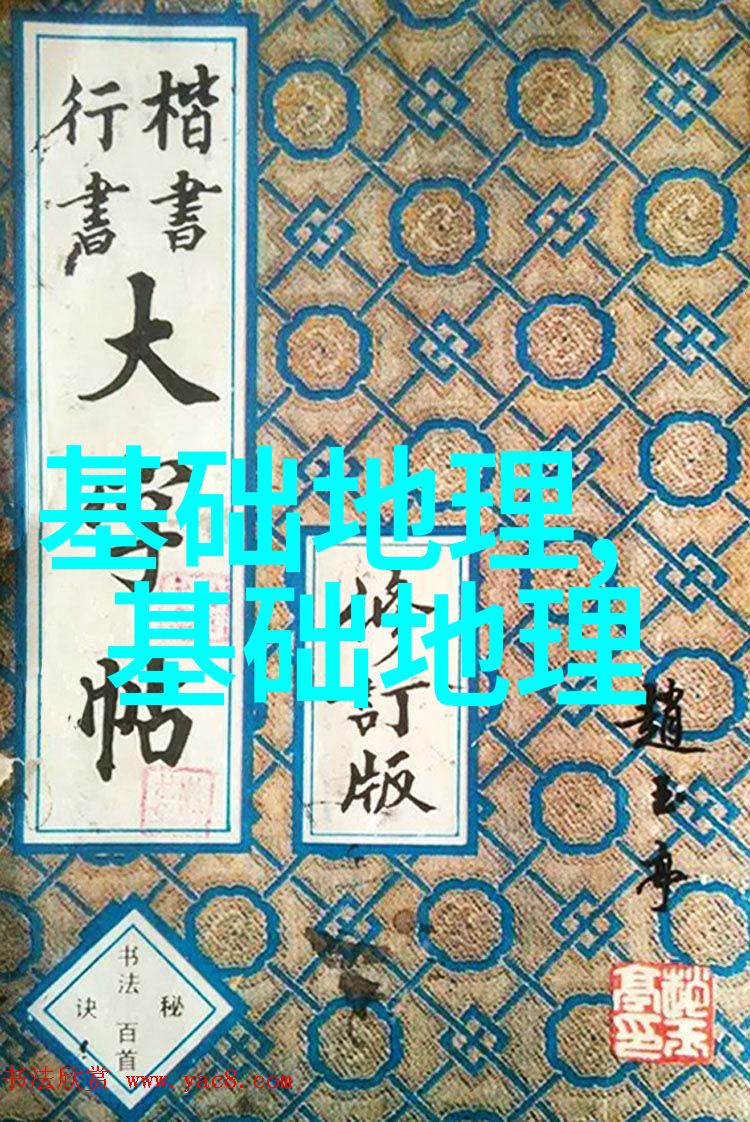 楷書
行書
大字帖
修訂版
趙玉亭
基础地理,
基础地理
书法
百首
秘
诀
书法欣赏 www.yac8.com